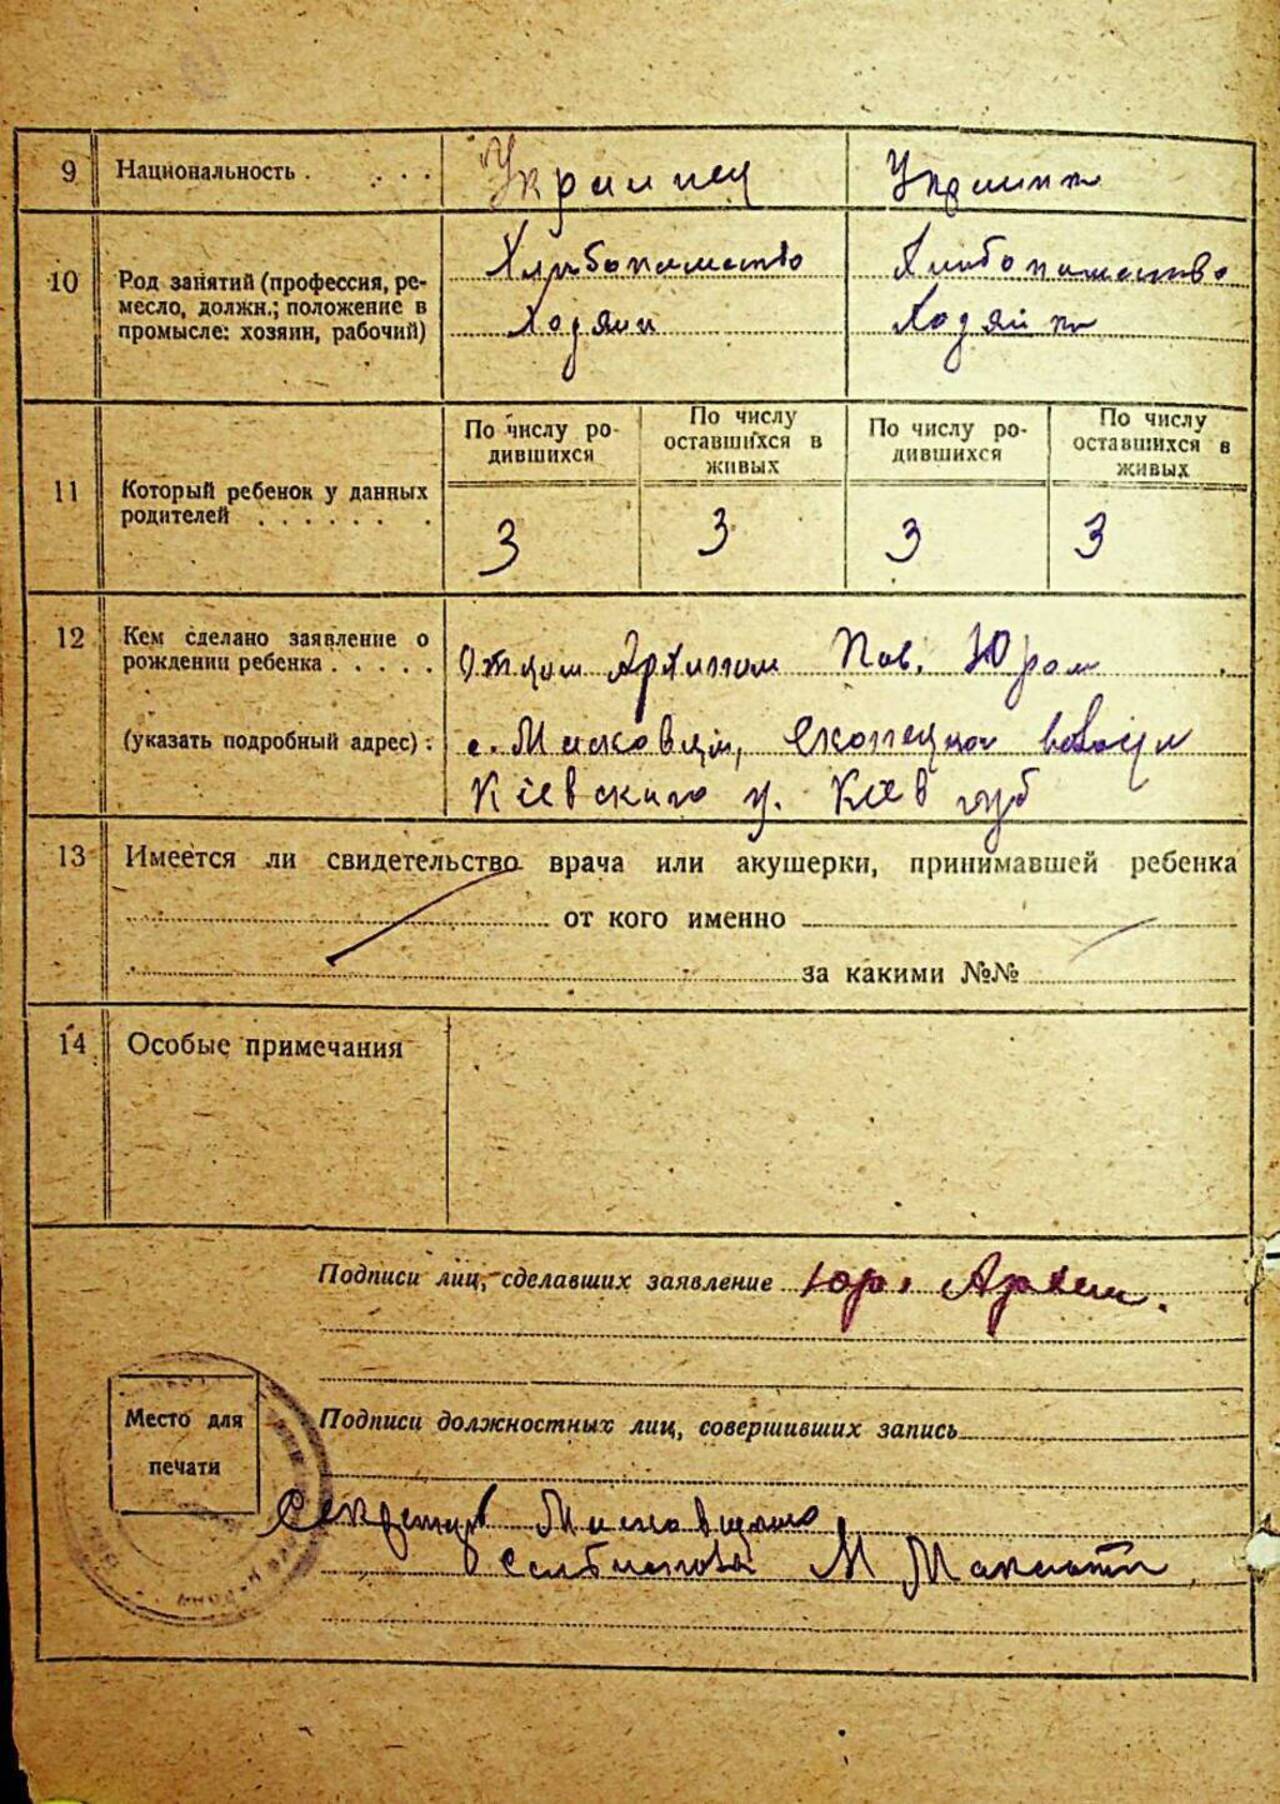 9 Национальность . . . . Украинец Украинка
10 Род занятий (профессия, ре-
месло, должн.; положение в
промысле: хозяин, рабочий)
Хлибопашество Хлибопашество
Хозяин Хозяйка
11 Который ребенок у данных
родителей . . . . . . .
По числу ро-
дившихся
По числу
оставшихся в
живых
По числу ро-
дившихся
По числу
оставшихся в
живых
3 3 3 3
12 Кем сделано заявление о
рождении ребенка . . . . .
(указать подробный адрес) :
Отцом Архипом Пав. Юром
с. Мысковцы, волости
Кіевского у. Кіев губ
13 Имеется ли свидетельство врача или акушерки, принимавшей ребенка
от кого именно
за какими №№
14 Особые примечания
Подписи лиц, сделавших заявление Юр. Архип.
Место для
печати
Подписи должностных лиц, совершивших запись
Секретарь
М